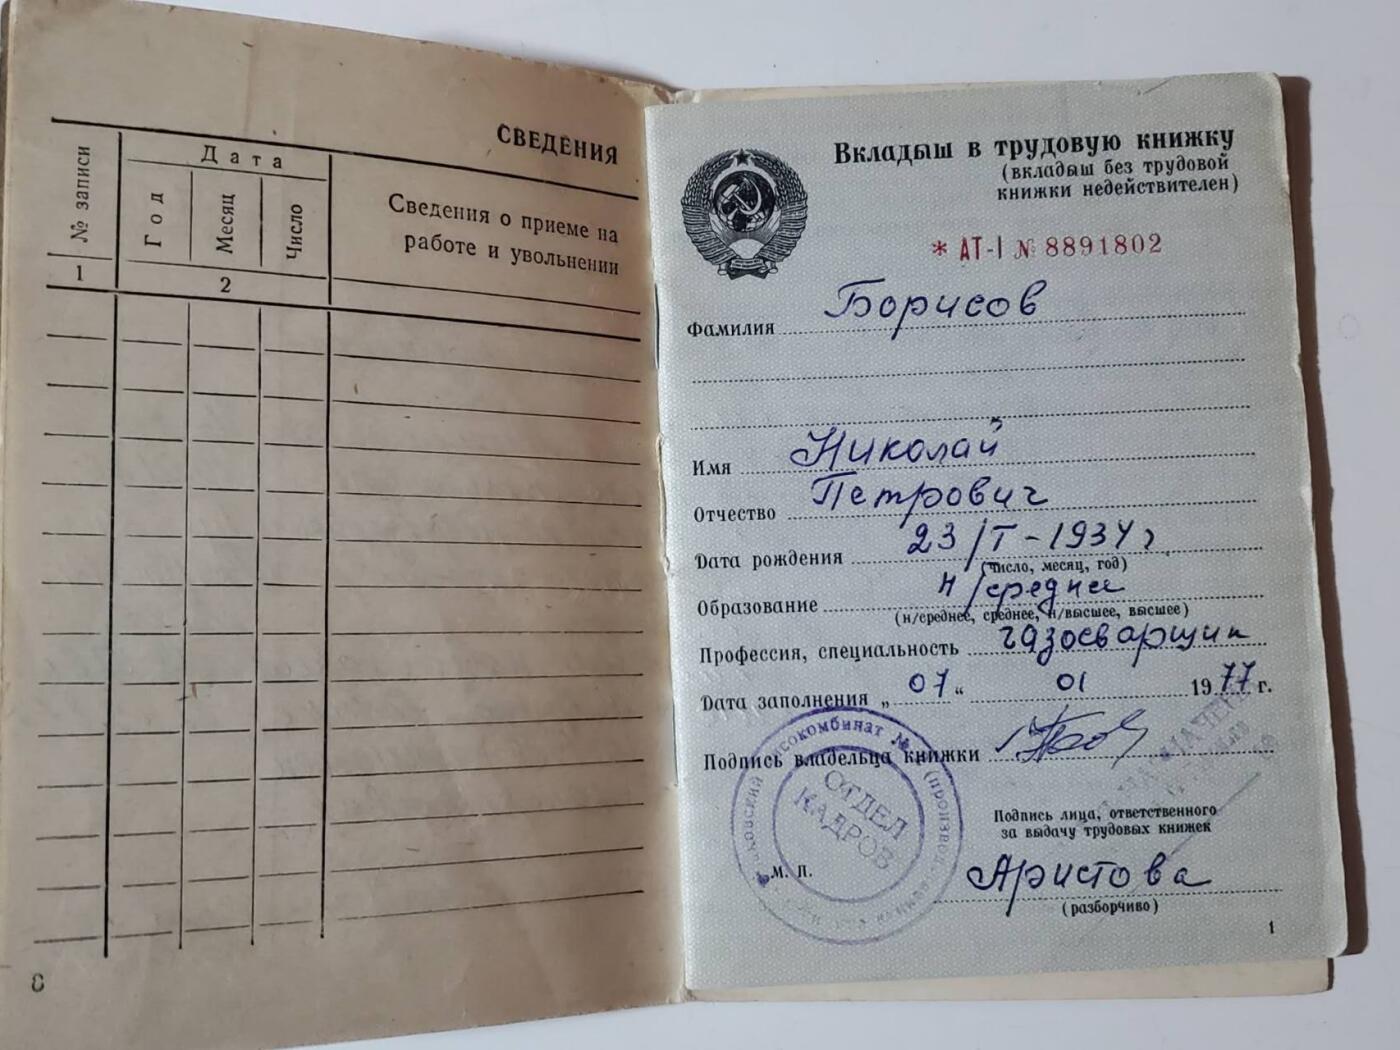 СВЕДЕНИЯ
№ записи
Дата
Год
Месяц
Число
Сведения о приеме на
работе и увольнении
1
2
8
Вкладыш в трудовую книжку
(вкладыш без трудовой
книжки недействителен)
* АТ-I № 8891802
Фамилия Борисов
Имя Николай
Отчество Петрович
Дата рождения 23/I-1934г
(число, месяц, год)
Образование н/среднее
(н/среднее, среднее, н/высшее, высшее)
Профессия, специальность газосварщик
Дата заполнения „07“ 01 1977 г.
Подпись владельца книжки
Подпись лица, ответственного
за выдачу трудовых книжек
М. П.
Аристова
(разборчиво)
ОТДЕЛ
КАДРОВ
1